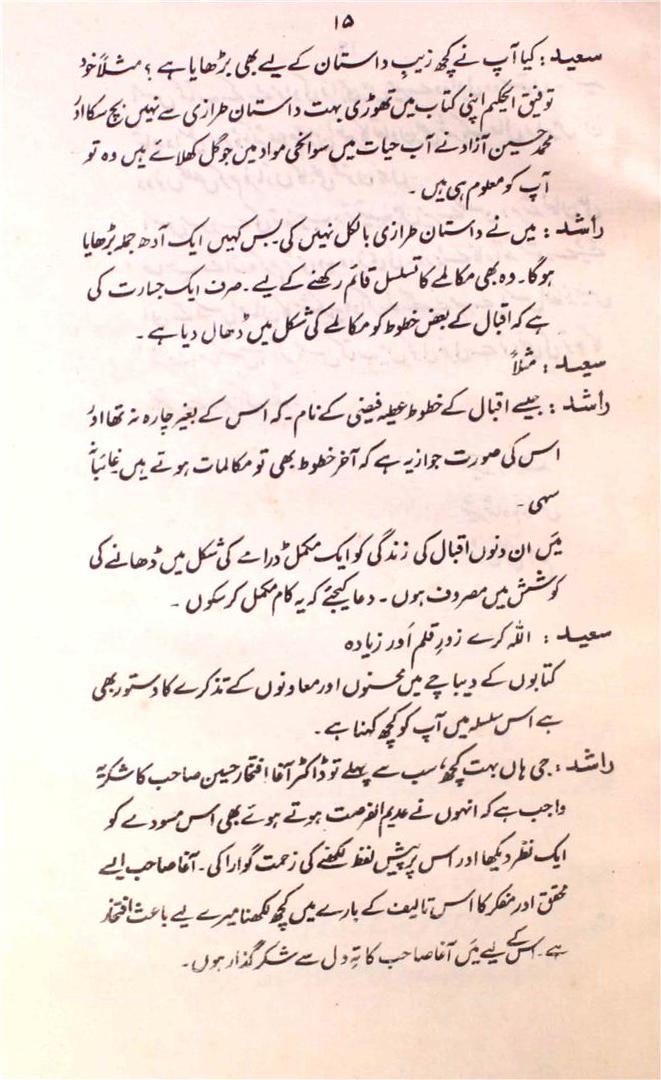 ۱۵
سعید : کیا آپ نے کچھ زیبِ داستان کے لیے بھی بڑھایا ہے ؟ مثلاً خود
توفیق الحکیم اپنی کتاب میں تھوڑی بہت داستان طرازی سے نہیں بچ سکا اور
محمد حسین آزاد نے آب حیات میں سوانحی مواد میں جو گل کھلائے ہیں وہ تو
آپ کو معلوم ہی ہیں ۔
راشد : میں نے داستان طرازی بالکل نہیں کی بس کہیں ایک آدھ جملہ بڑھایا
ہو گا ۔ وہ بھی مکالمے کا تسلسل قائم رکھنے کے لیے ۔ صرف ایک جسارت کی
ہے کہ اقبال کے بعض خطوط کو مکالمے کی شکل میں ڈھال دیا ہے ۔
سعید : مثلاً
راشد : جیسے اقبال کے خطوط عطیہ فیضی کے نام ۔ کہ اس کے بغیر چارہ نہ تھا اور
اس کی صورت جواز یہ ہے کہ آخر خطوط بھی تو مکالمات ہوتے ہیں غائبانہ
سہی ۔
میں ان دنوں اقبال کی زندگی کو ایک مکمل ڈرامے کی شکل میں ڈھانے کی
کوشش میں مصروف ہوں ۔ دعا کیجئے کہ یہ کام مکمل کر سکوں ۔
سعید : اللہ کرے زورِ قلم اور زیادہ
کتابوں کے دیباچے میں محسنوں اور معاونوں کے تذکرے کا دستور بھی
ہے اس سلسلہ میں آپ کو کچھ کہنا ہے ۔
راشد : جی ہاں بہت کچھ، سب سے پہلے تو ڈاکٹر آغا افتخار حسین صاحب کا شکریہ
واجب ہے کہ انہوں نے عدیم الفرصت ہوتے ہوئے بھی اس مسودے کو
ایک نظر دیکھا اور اس پر پیش لفظ لکھنے کی زحمت گوارا کی ۔ آغا صاحب ایسے
محقق اور مفکر کا اس تالیف کے بارے میں کچھ لکھنا میرے لیے باعث افتخار
ہے ۔ اس کے لیے میں آغا صاحب کا تہِ دل سے شکر گذار ہوں ۔